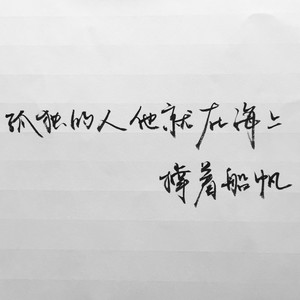 孤独的人他就在海上
撑着船帆